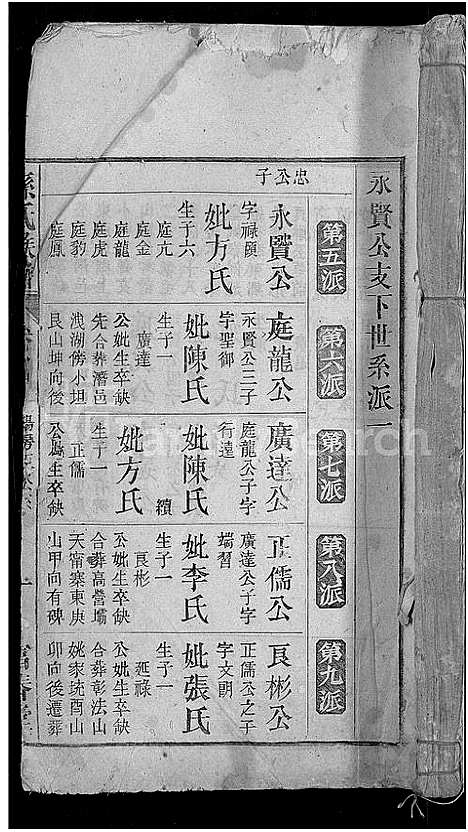 永賢公支下世系派一
第五派
忠公子
永賢公
字祿頤
妣方氏
生子六
庭亢
庭金
庭龍
庭虎
庭豹
庭鳳
第六派
庭龍公
永賢公三子
字聖御
妣陳氏
生子一
廣達
公妣生卒缺
先合葬潛邑
洩湖傍小坦
艮山坤向後
第七派
廣達公
庭龍公子字
行達
妣陳氏
續
妣方氏
生子一
正儒
公媽生卒缺
第八派
正儒公
廣達公子字
端習
妣李氏
生子一
良彬
公妣生卒缺
合葬高營壩
天甯寨東庚
山甲向有碑
第九派
良彬公
正儒公之子
字文明
妣張氏
生子一
延祿
公妣生卒缺
合葬彰法山
姚家垅酉山
卯向後遷葬
孫氏族譜